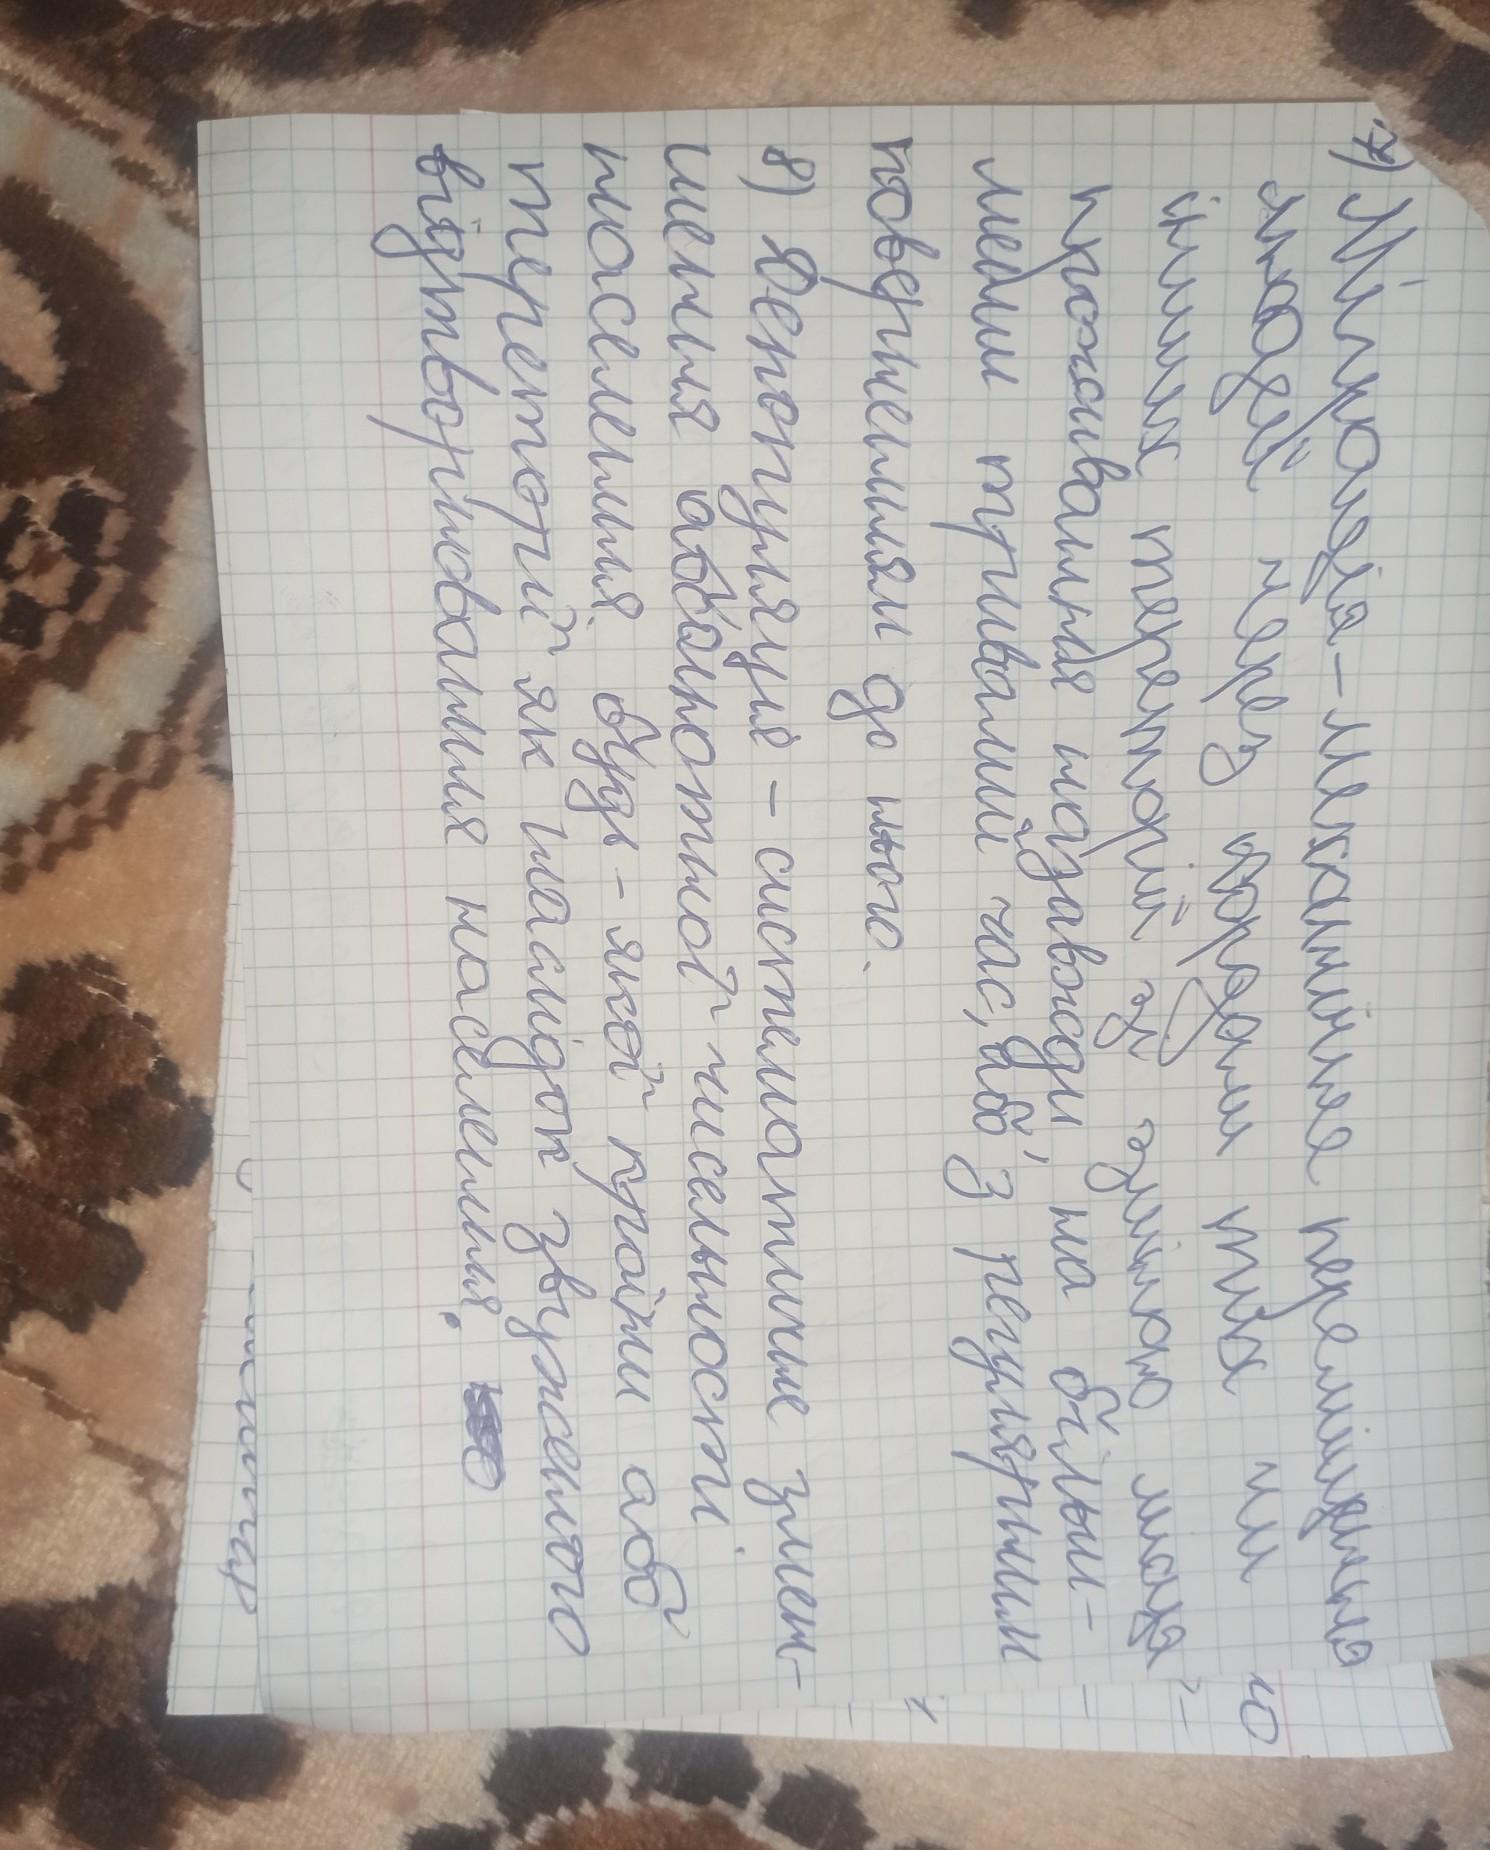 7) Міграція - механічне переміщення
людей через кордони тих чи
інших територій зі зміною місця
проживання назавжди, на більш-
менш тривалий час, або з регулярним
поверненням до нього.
8) Депопуляція - систематичне змен-
шення абсолютної чисельності
населення будь-якої країни або
території як наслідок звуженого
відтворювання населення.